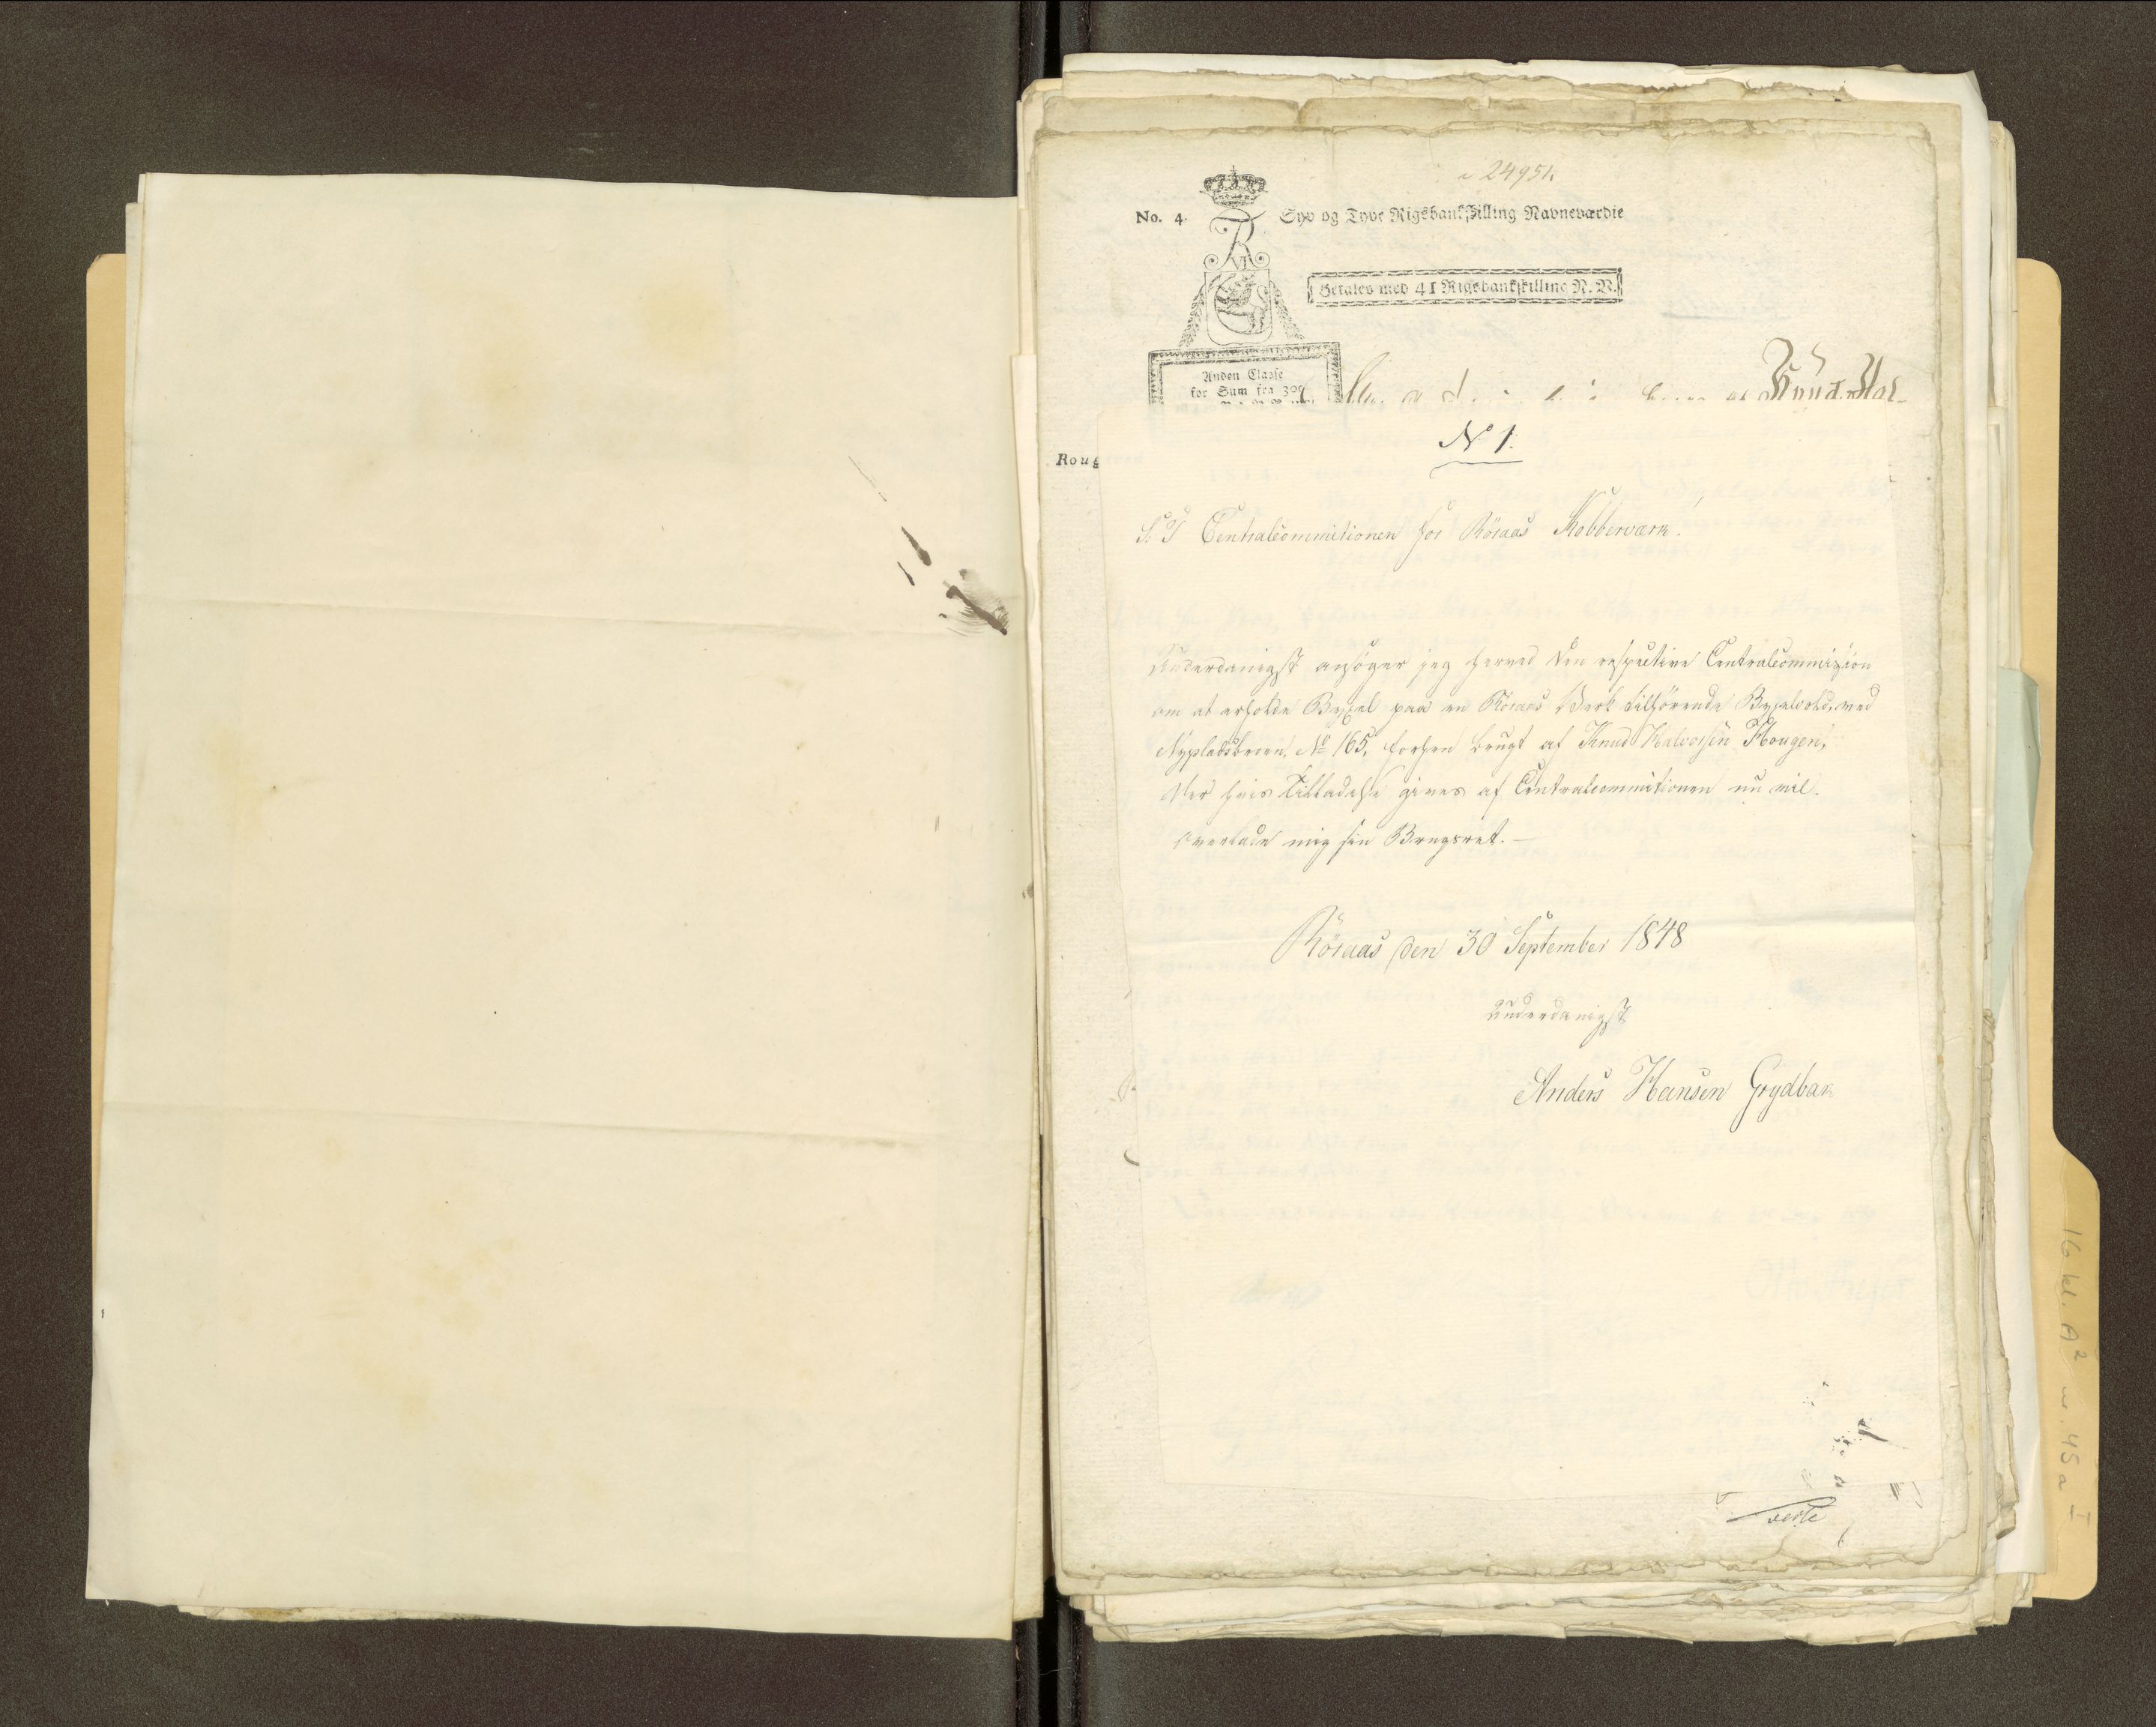 24951.
No. 4. Syv og Tyve Rigsbankskilling Navneværdie
Betales med 41 Rigsbankskilling N. V.
Anden Classe
for Sum fra 300
Knud Hal-
Roug
N 1.
S. T. Centralcommitionen for Röraas Kobberværk!
Underdanigst ansöger jeg herved den respective Centralcommission
om at erholde Bygsel paa en Röraas Verk tilhörende Bygselvold, ved
Nypladsbroen, No 165, forhen brugt af Knud Halvorsen Hougen,
der hvis Tilladelse gives af Centralcommitionen nu vil
overlade mig sin Brugsret. —
Röraas den 30 September 1848
underdanigst
Anders Hansen Grydbak
16 kl. A2 nr. 45 a I